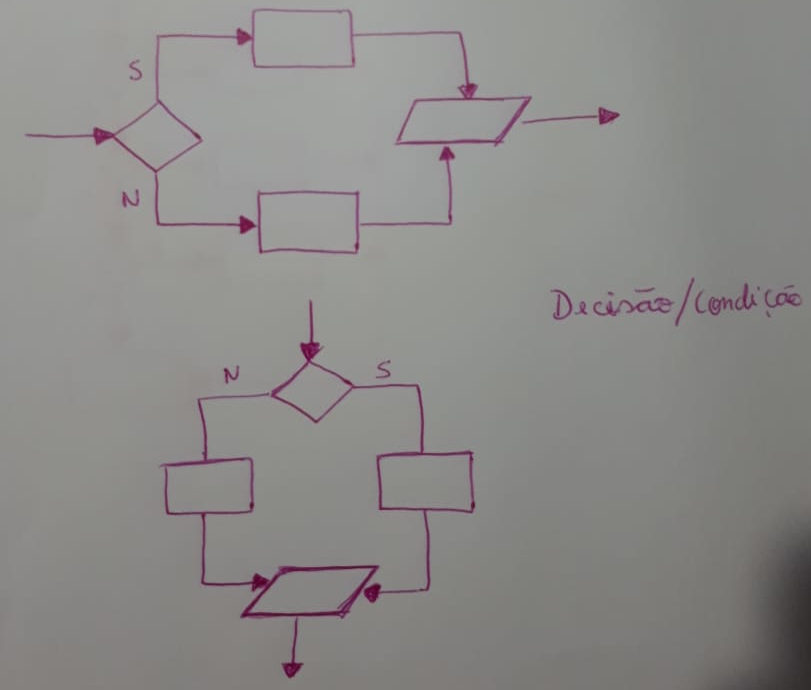 S
N
Decisão/Condição
N S